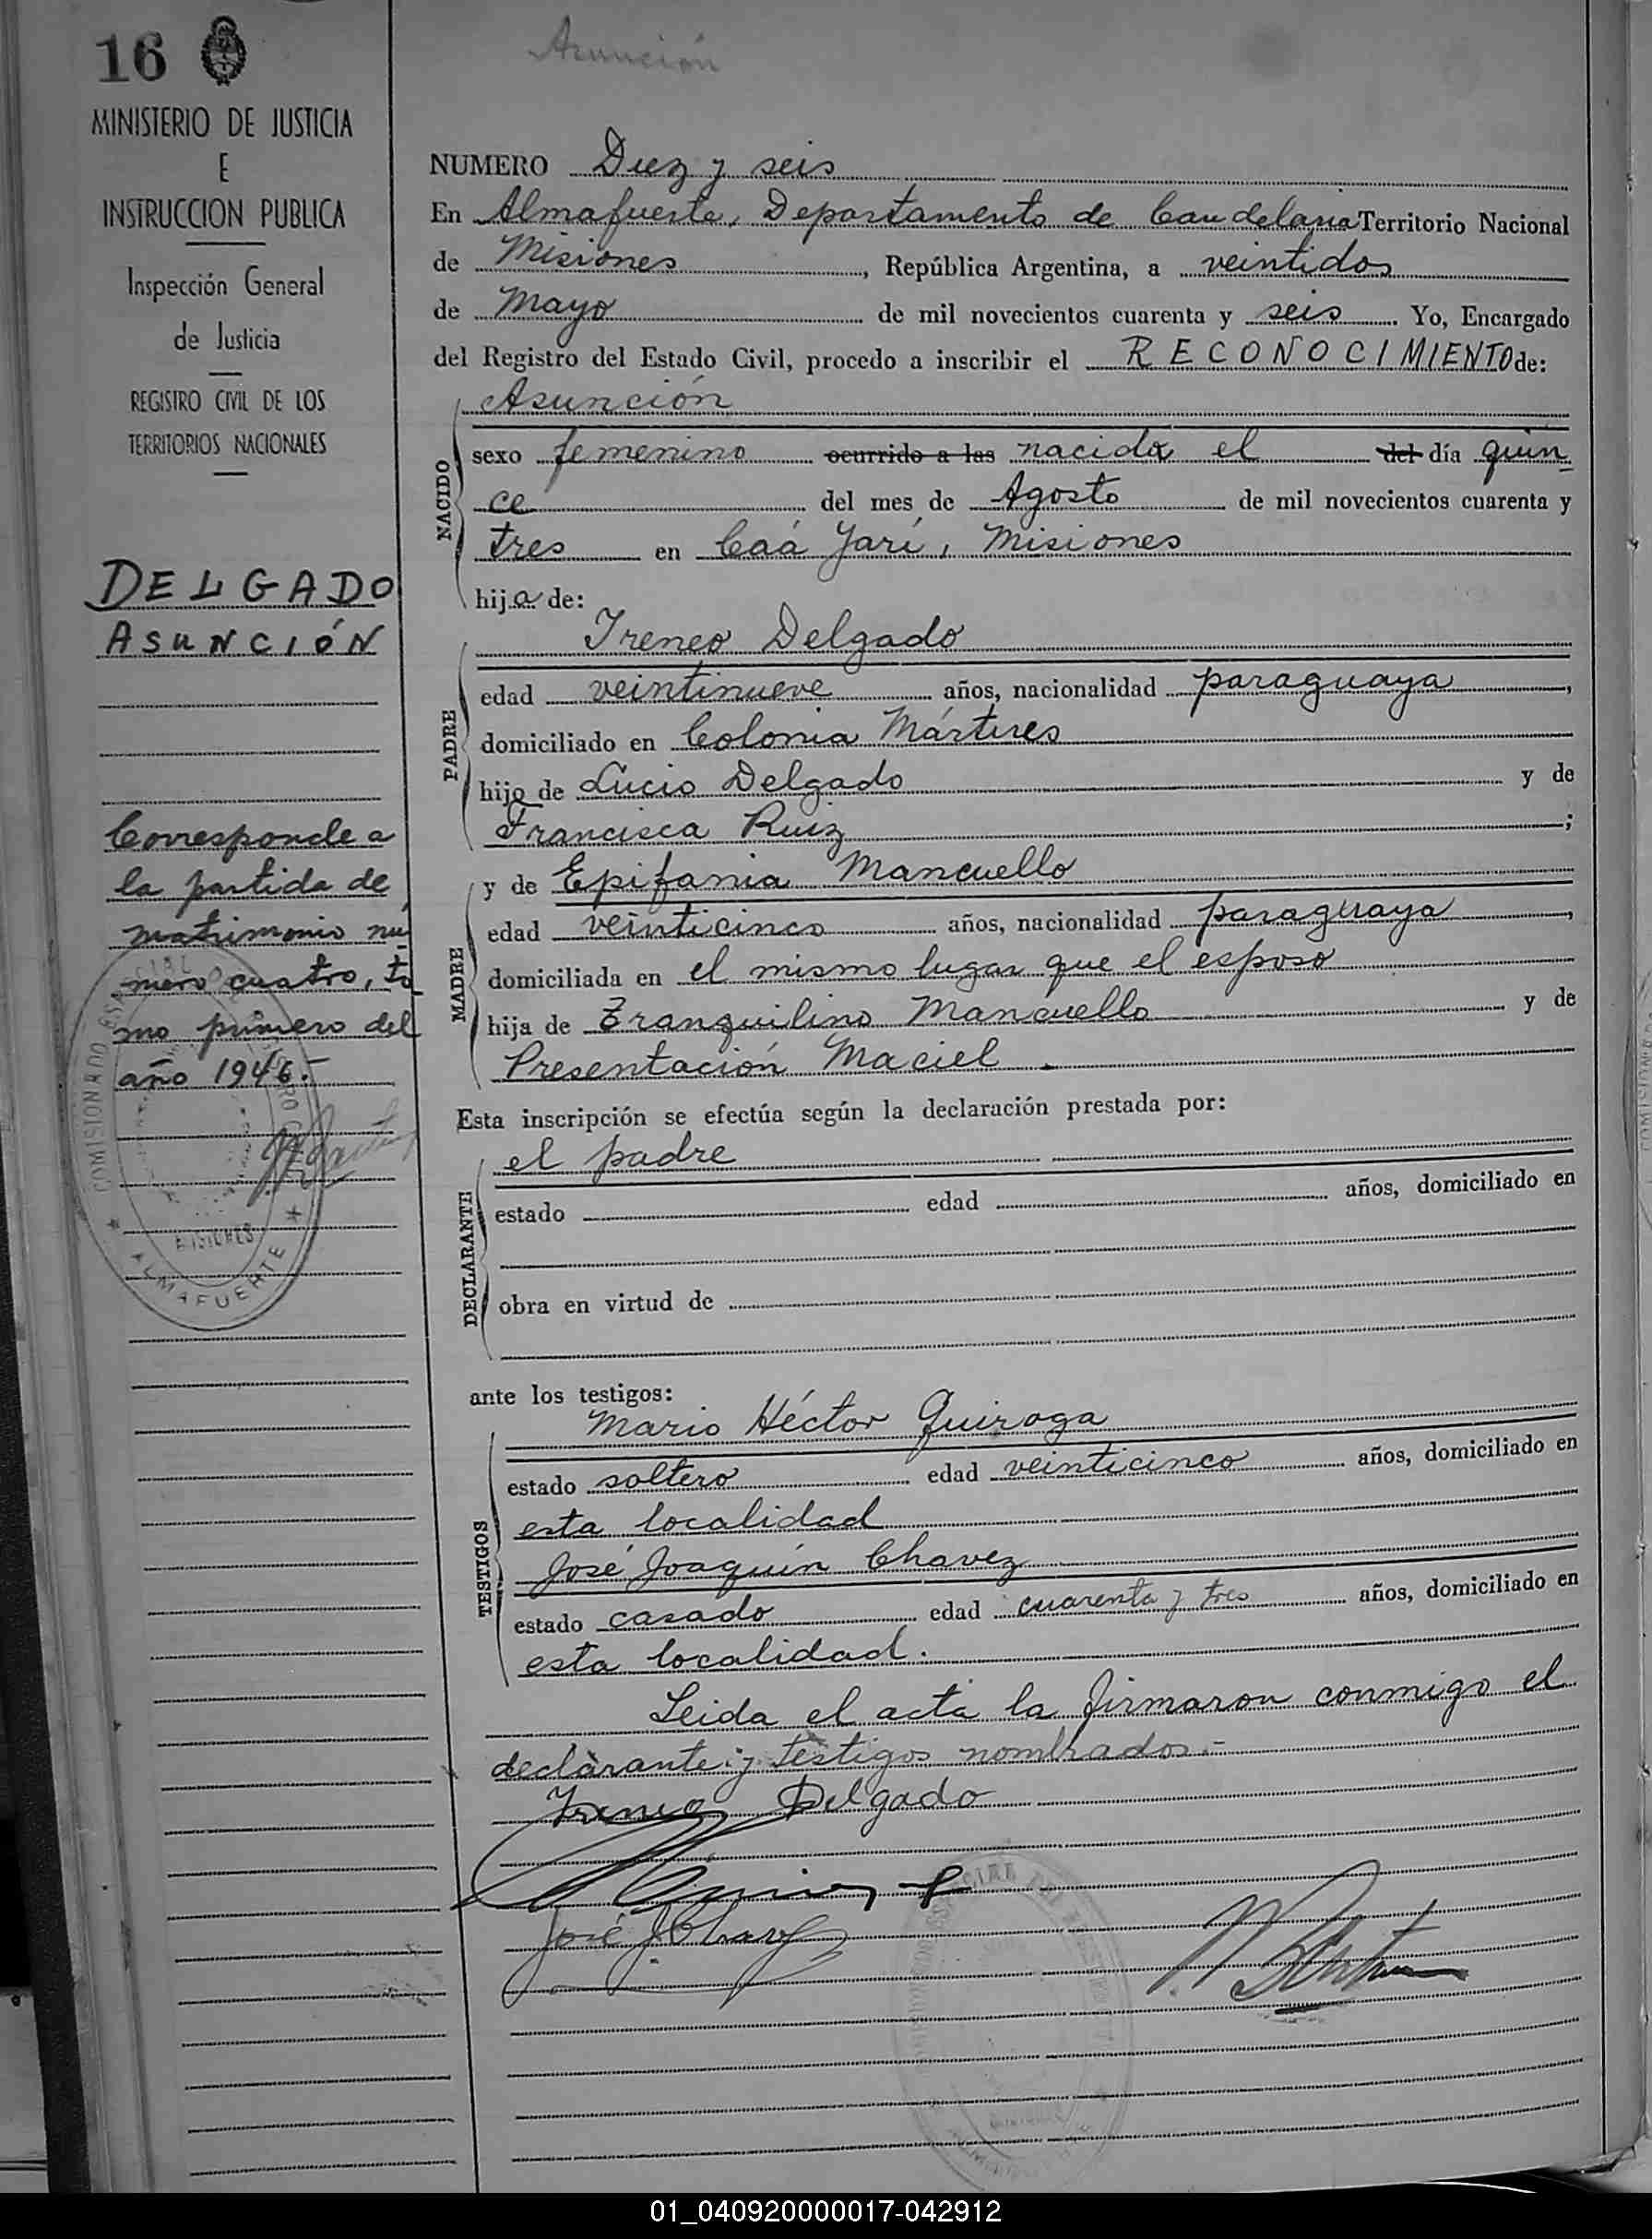 16
MINISTERIO DE JUSTICIA
E
INSTRUCCION PUBLICA
Inspección General
de Justicia
REGISTRO CIVIL DE LOS
TERRITORIOS NACIONALES
DELGADO
ASUNCIÓN
Corresponde a
la partida de
matrimonio nú
mero cuatro, to
mo primero del
año 1946.-
COMISIONADO
MISIONES
ALMAFUERTE
Asunción
NUMERO Diez y seis
En Almafuerte, Departamento de Candelaria Territorio Nacional
de Misiones, República Argentina, a veintidos
de Mayo de mil novecientos cuarenta y seis. Yo, Encargado
del Registro del Estado Civil, procedo a inscribir el RECONOCIMIENTO de:
NACIDO
Asunción
sexo femenino ocurrido a las nacida el del día quin
ce del mes de Agosto de mil novecientos cuarenta y
tres en Caá Yarí, Misiones
hija de:
PADRE
Ireneo Delgado
edad veintinueve años, nacionalidad paraguaya,
domiciliado en Colonia Mártires
hijo de Lucio Delgado y de
Francisca Ruiz;
MADRE
y de Epifania Mancuello
edad veinticinco años, nacionalidad paraguaya,
domiciliada en el mismo lugar que el esposo
hija de Tranquilino Mancuello y de
Presentación Maciel.
Esta inscripción se efectúa según la declaración prestada por:
DECLARANTE
el padre
estado edad años, domiciliado en
obra en virtud de
ante los testigos:
TESTIGOS
Mario Héctor Quiroga
estado soltero edad veinticinco años, domiciliado en
esta localidad
José Joaquín Chavez
estado casado edad cuarenta y tres años, domiciliado en
esta localidad.
Leida el acta la firmaron conmigo el
declarante y testigos nombrados.-
Ireneo Delgado
José J Chavez
01_040920000017-042912